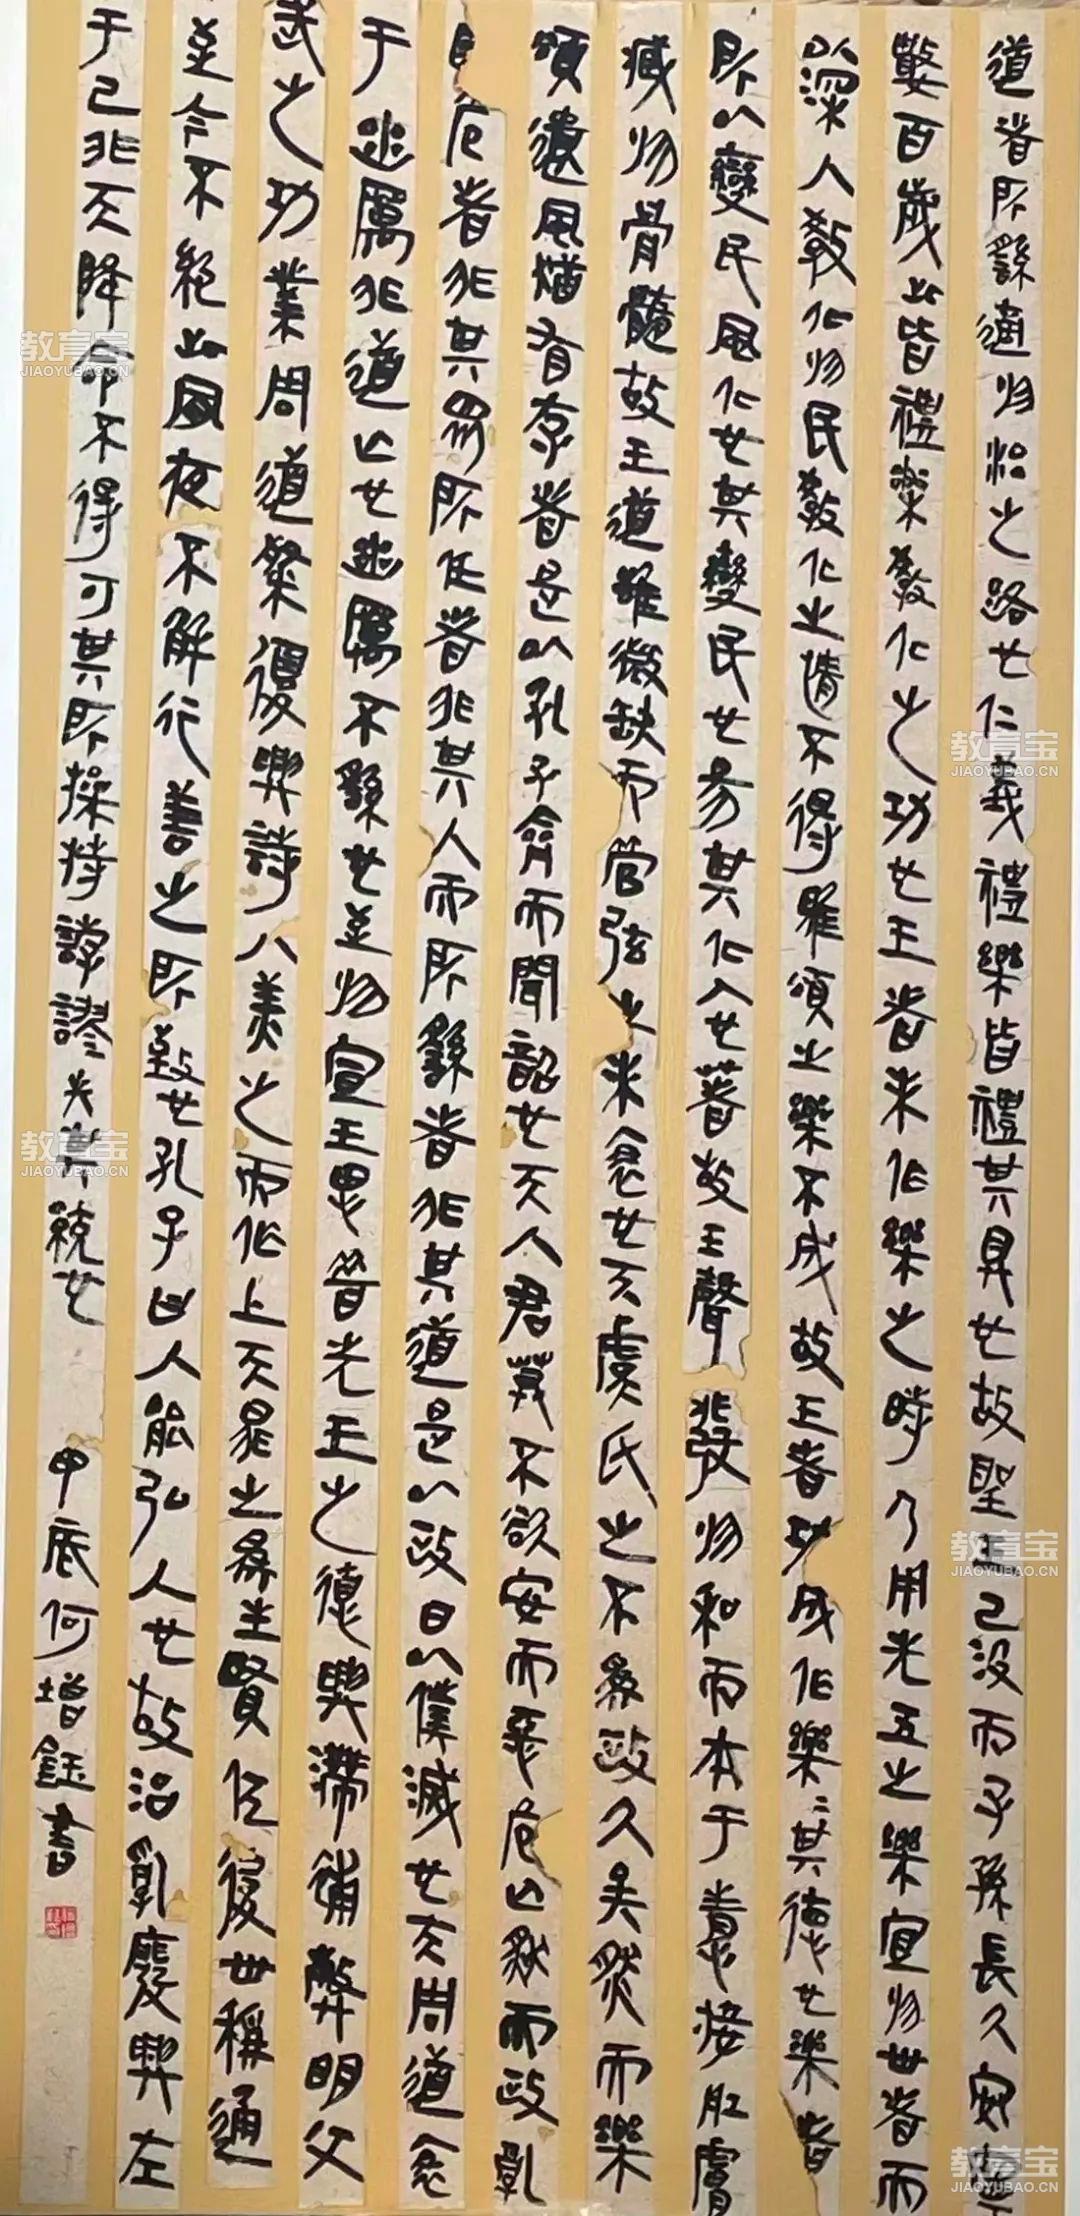 道者所繇適於治之路也仁義禮樂皆禮其具也故聖王已沒而子孫長久安寧
數百歲此皆禮樂教化之功也王者未作樂之時乃用先王之樂宜於世者而
以深入教化於民教化之情不得雅頌之樂不成故王者功成作樂〻其德也樂者
所以變民風化也其變民也易其化人也著故王聲發於和而本于情接肌膚
臧於骨髓故王道雖微缺而管弦之未衰也夫虞氏之不為政久矣然而樂
頌遺風猶有存者是以孔子齊而聞韶也夫人君莫不欲安而惡危亡然而政亂
國危者非其眾所任者非其人而所繇者非其道是以政日以僕滅也夫周道衰
于幽厲非道亡也幽厲不繇也至於宣王思昔先王之德興滯補弊明文
武之功業周道粲復興詩人美之而作上天晁之為生賢佐後世稱通
至今不絕此夙夜不解行善之所致也孔子曰人能弘人也故治亂廢興在
于己非天降命不得可其所操持誖謬失其統也 甲辰何增鈺書
教育宝
JIAOYUBAO.CN
教育宝
JIAOYUBAO.CN
教育宝
JIAOYUBAO.CN
教育宝
JIAOYUBAO.CN
教育宝
JIAOYUBAO.CN